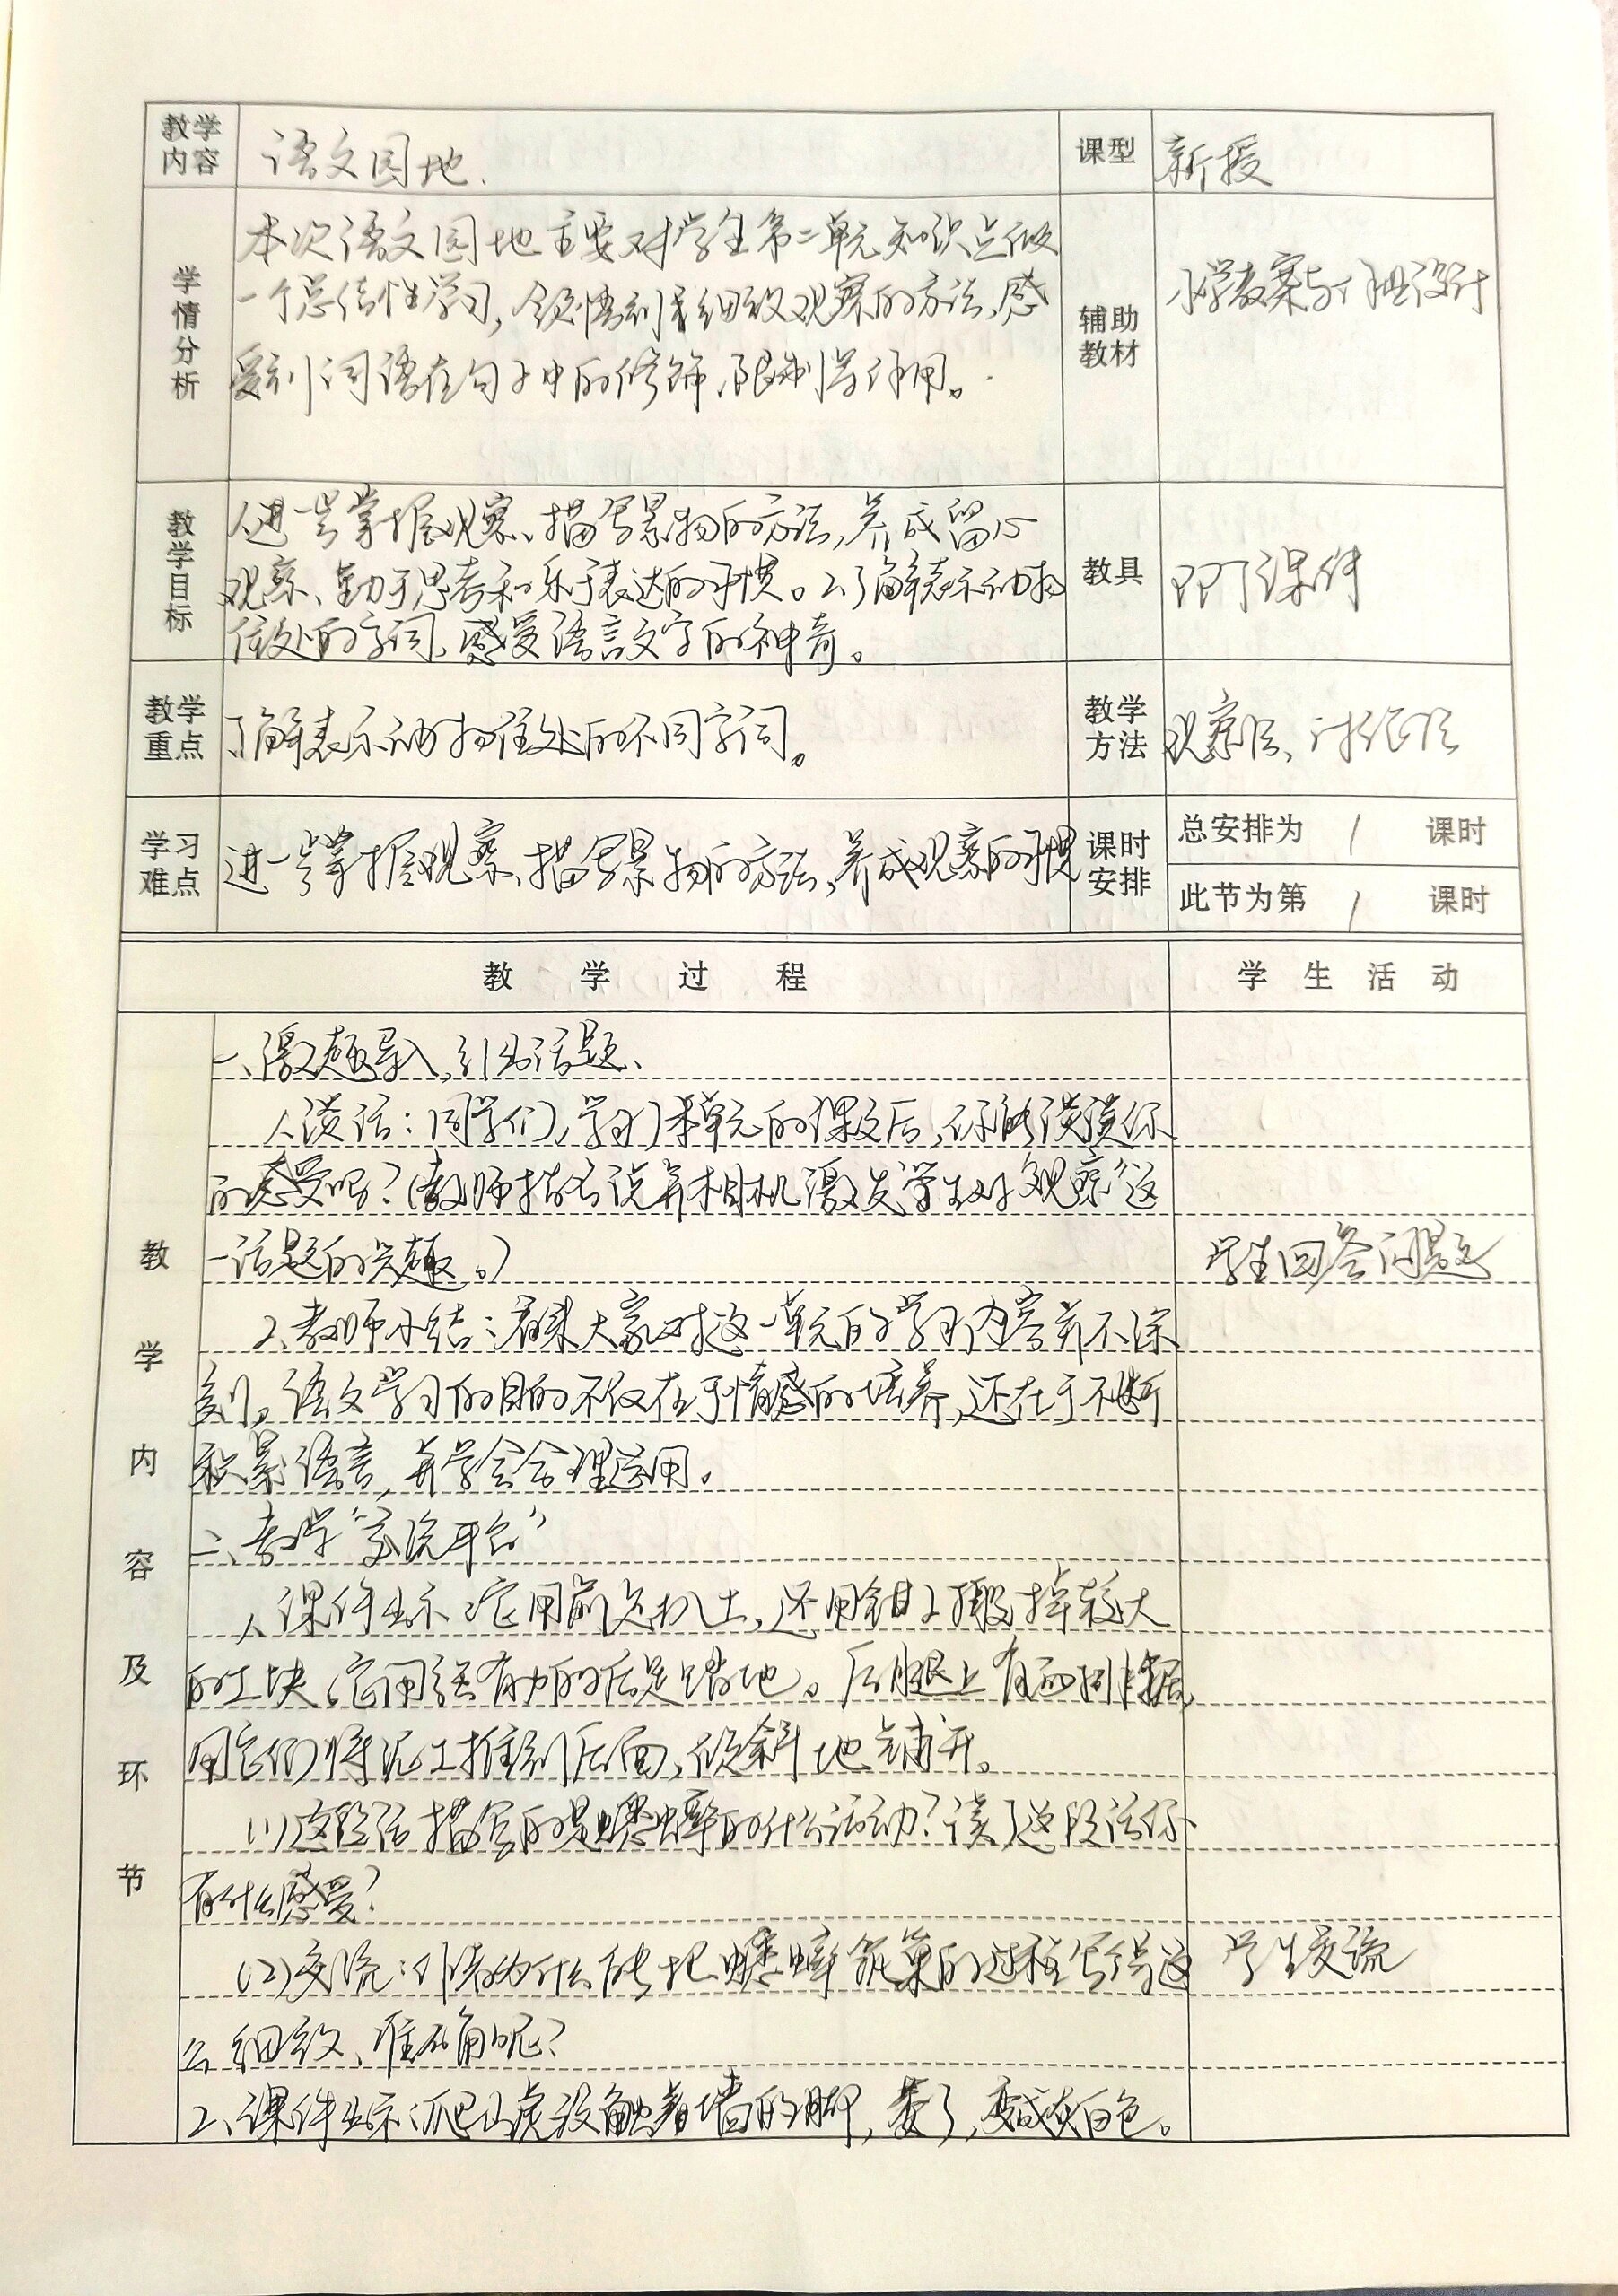 教学内容 语文园地. 课型 新授
学情分析 本次语文园地主要对学生第二单元知识点做
一个总结性学习,领悟到细致观察的方法,感
受到词语在句子中的修饰、限制等作用。
辅助教材 小学教案与作业设计
教学目标 1、进一步掌握观察、描写景物的方法,养成留心
观察、勤于思考和乐于表达的习惯。2、了解表示动物
住处的字词,感受语言文字的神奇。
教具 PPT课件
教学重点 了解表示动物住处的不同字词。
教学方法 观察法、讨论法
学习难点 进一步掌握观察、描写景物的方法,养成观察的习惯
课时安排 总安排为 1 课时
此节为第 1 课时
教学过程 学生活动
教学内容及环节
一、激趣导入,引出话题、
1、谈话:同学们,学习了本单元的课文后,你能谈谈你
的感受吗?(教师指名说并相机激发学生对“观察”这
一话题的兴趣。) 学生回答问题
2、教师小结:看来大家对这一单元的学习内容并不深
刻,语文学习的目的不仅在于情感的培养,还在于不断
积累语言,并学会合理运用。
二、教学“交流平台”
1、课件出示:它用前足扒土,还用钳子搬掉较大
的土块,它用强有力的后足踏地。后腿上有两排锯,
用它们将泥土推到后面,倾斜地铺开。
(1)这段话描写的是蟋蟀的什么活动?读了这段话你
有什么感受?
(2)交流:作者为什么能把蟋蟀筑巢的过程写得这 学生交流
么细致、准确呢?
2、课件出示:爬山虎没触着墙的脚,萎了,变成灰白色。